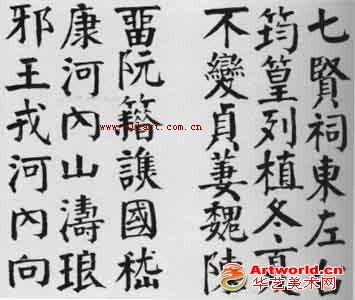 七賢祠東左右
筠篁列植冬夏
不變貞萋魏陳
留阮籍譙國嵇
康河內山濤琅
邪王戎河內向
Artworld.cn
华艺美术网